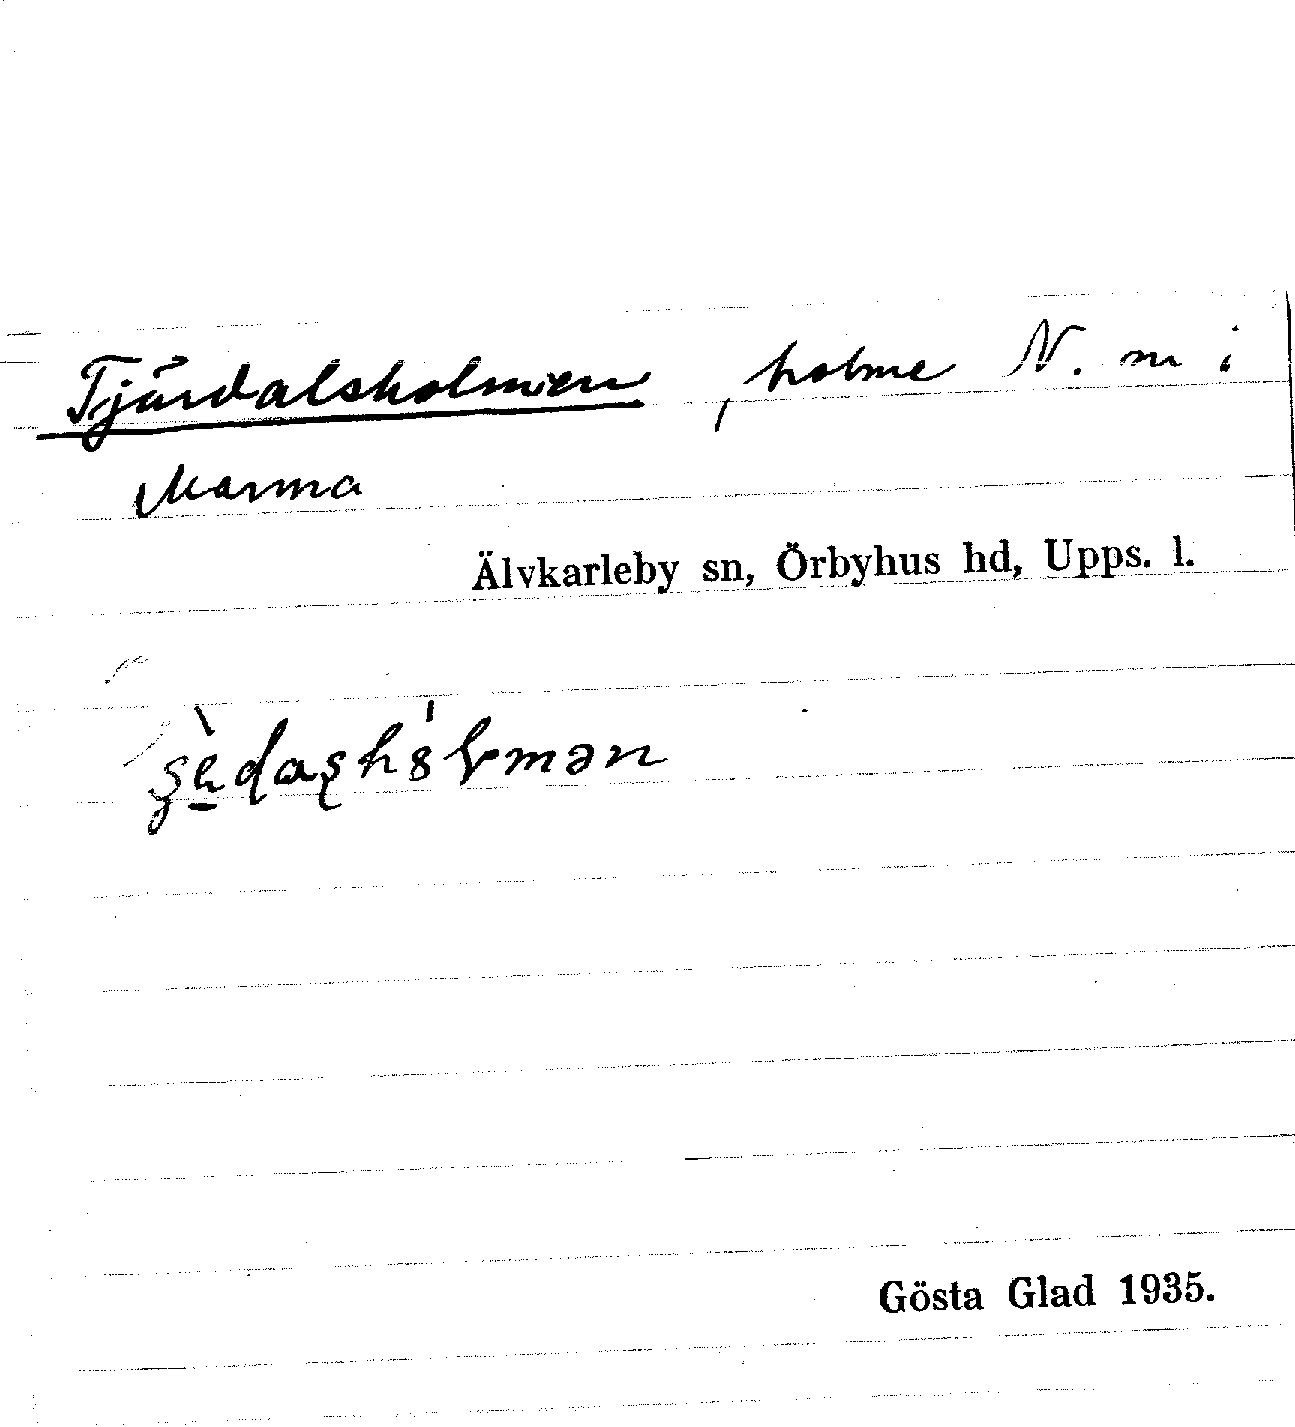 Tjärdalsholmen, holme N. m i
Marma
Älvkarleby sn, Örbyhus hd, Upps. l.
Gösta Glad 1935.